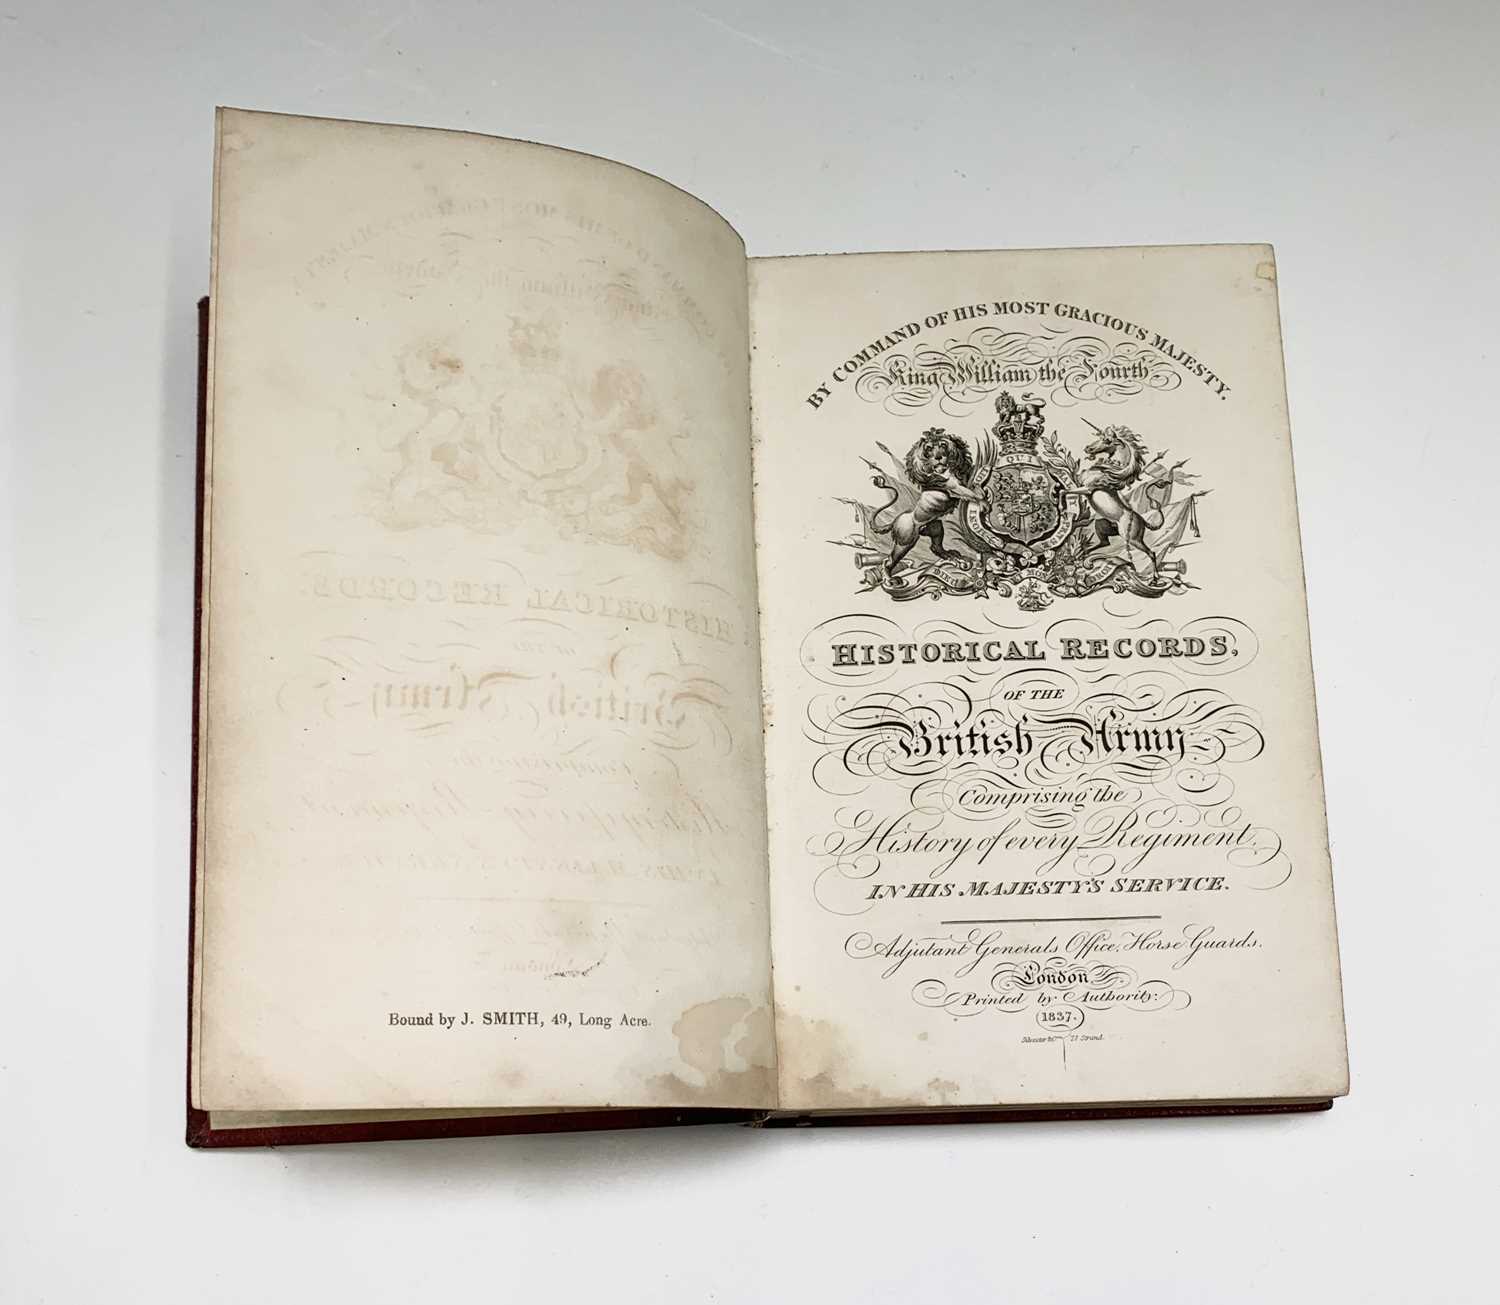 Bound by J. SMITH, 49, Long Acre.
BY COMMAND OF HIS MOST GRACIOUS MAJESTY.
King William the Fourth.
HISTORICAL RECORDS,
OF THE
British Army
Comprising the
History of every Regiment
IN HIS MAJESTY'S SERVICE.
Adjutant Generals Office, Horse Guards.
London
Printed by Authority:
1837.
Strand.